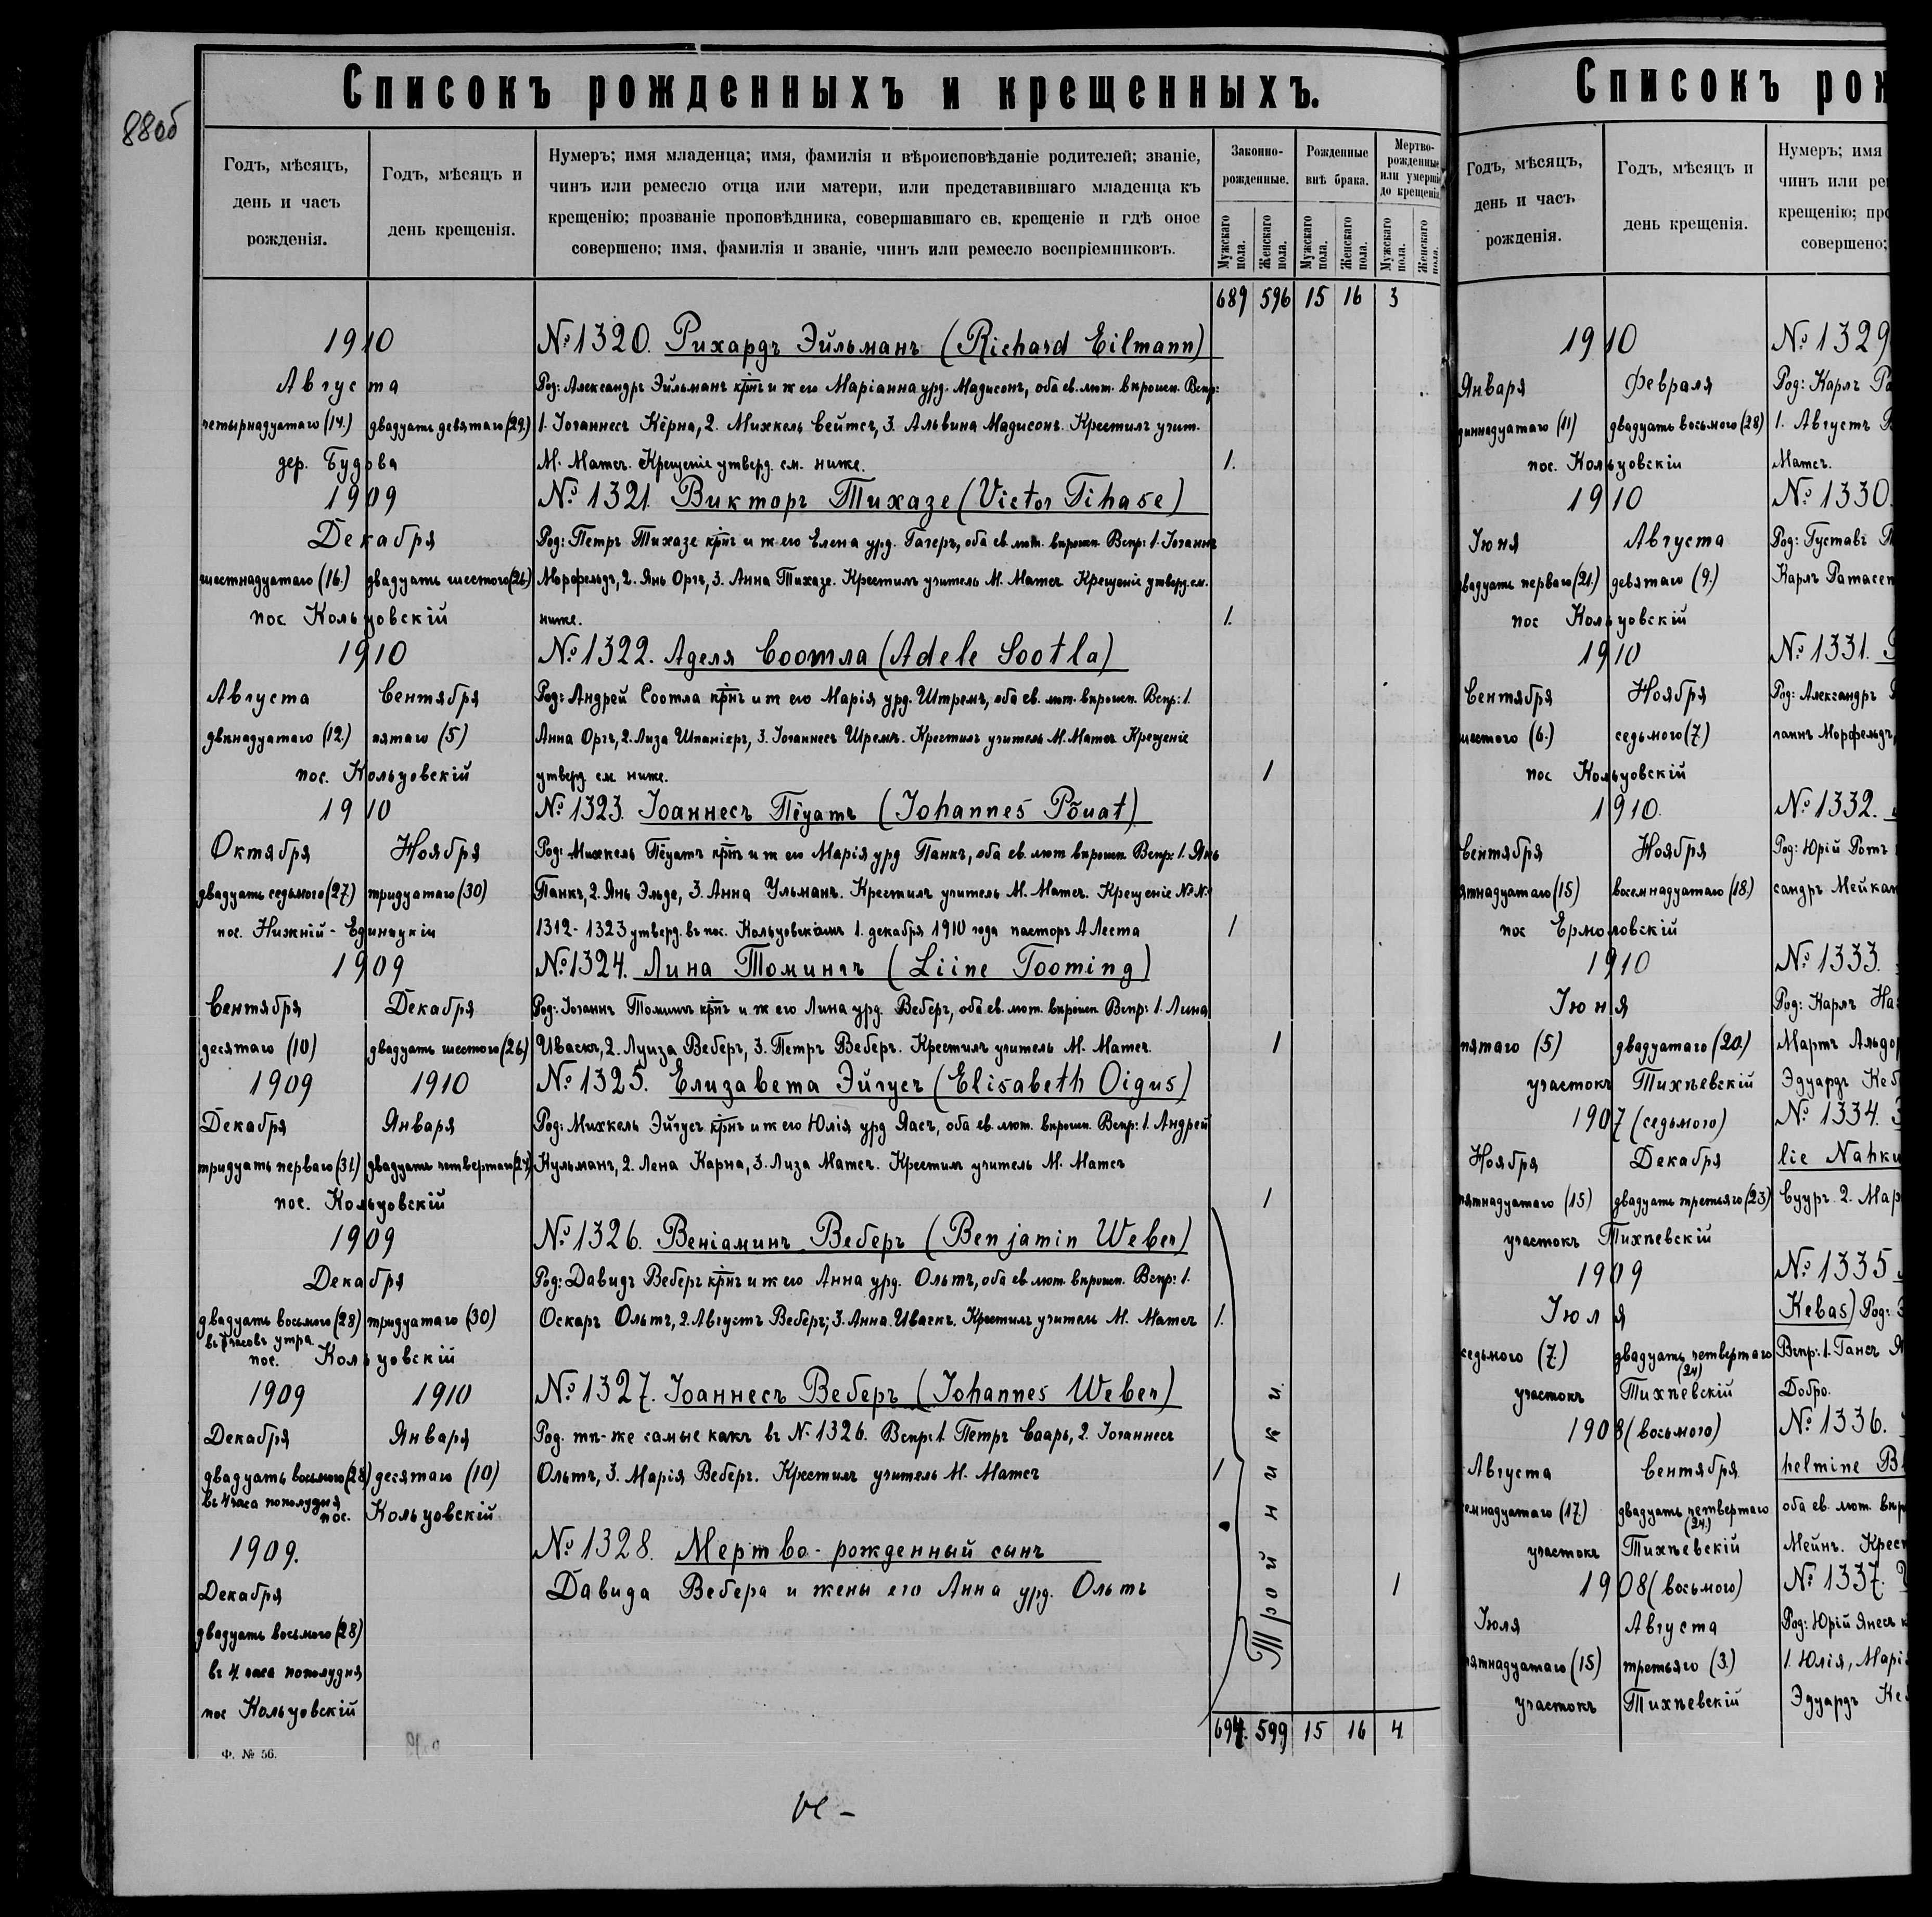 88об
Списокъ рожденныхъ и крещенныхъ.
Годъ, мѣсяцъ, день и часъ рожденія.
Годъ, мѣсяцъ и день крещенія.
Нумеръ; имя младенца; имя, фамилія и вѣроисповѣданіе родителей; званіе,
чинъ или ремесло отца или матери, или представившаго младенца къ
крещенію; прозваніе проповѣдника, совершавшаго св. крещеніе и гдѣ оное
совершено; имя, фамилія и званіе, чинъ или ремесло воспріемниковъ.
Законно-рожденные.
Рожденные внѣ брака.
Мертво-рожденные или умершіе до крещенія
Мужскаго пола. Женскаго пола. Мужскаго пола. Женскаго пола. Мужскаго пола. Женскаго пола.
689 596 15 16 3
1910 №1320. Рихардъ Эйльманъ (Richard Eilmann)
Августа Род: Александръ Эйльманъ крнъ и ж его Маріанна урд. Мадисонъ, оба ев. лют. вкрошен. Вспр:
четырнадцатаго (14.) двадцать девятаго (29.) 1. Іоганнесъ Кёрна, 2. Михкель Сейтсъ, 3. Альвина Мадисонъ. Крестилъ учит.
дер. Будова М. Матсъ. Крещеніе утверд. см. ниже. 1.
1909 №1321. Викторъ Тихазе (Victor Tihase)
Декабря Род: Петръ Тихазе крнъ и ж его Елена урд. Гагеръ, оба ев. лют. вкрошен. Вспр: 1. Іоганнъ
шестнадцатаго (16.) двадцать шестого (26.) Морфельдъ, 2. Янъ Оргъ, 3. Анна Тихазе. Крестилъ учитель М. Матсъ Крещеніе утверд. см.
пос. Кольцовскій ниже. 1.
1910 №1322. Аделя Соотла (Adele Sootla)
Августа Сентября Род: Андрей Соотла крнъ и ж его Марія урд. Штремъ, оба ев. лют. вкрошен. Вспр: 1.
двѣнадцатаго (12.) пятаго (5) Анна Оргъ, 2. Лиза Шпаніеръ, 3. Іоганнесъ Штремъ. Крестилъ учитель М. Матсъ Крещеніе
пос. Кольцовскій утверд. см. ниже. 1
1910 №1323. Іоаннесъ Пёуатъ (Johannes Põuat)
Октября Ноября Род: Михкель Пёуатъ крнъ и ж его Марія урд Панкъ, оба ев. лют вкрошен. Вспр: 1. Янъ
двадцать седьмого (27.) тридцатаго (30) Панкъ, 2. Янъ Эльде, 3. Анна Ульманъ. Крестилъ учитель М. Матсъ. Крещеніе №№
пос. Нижній-Единуцкій 1312-1323 утверд. въ пос. Кольцовскомъ 1. декабря 1910 года пасторъ А Леста 1
1909 №1324. Лина Томингъ (Liine Tooming)
Сентября Декабря Род: Іоганнъ Томингъ крнъ и ж его Лина урд. Веберъ, оба ев. лют. вкрошен. Вспр: 1. Лина
десятаго (10) двадцать шестого (26.) Иваскъ, 2. Луиза Веберъ, 3. Петръ Веберъ. Крестилъ учитель М. Матсъ. 1
1909 1910 №1325. Елизавета Эйгусъ (Elisabeth Oigus)
Декабря Января Род: Михкель Эйгусъ крнъ и ж его Юлія урд Яасъ, оба ев. лют. вкрошен. Вспр: 1. Андрей
тридцать перваго (31.) двадцать четвертаго (24.) Кульманъ, 2. Лена Карна, 3. Лиза Матсъ. Крестилъ учитель М. Матсъ
пос. Кольцовскій 1
1909 №1326. Веніаминъ Веберъ (Benjamin Weber)
Декабря Род: Давидъ Веберъ крнъ и ж его Анна урд. Ольтъ, оба ев. лют. вкрошен. Вспр: 1.
двадцать восьмого (28) тридцатаго (30) Оскаръ Ольтъ, 2. Августъ Веберъ; 3. Анна Иваскъ. Крестилъ учитель М. Матсъ 1.
часовъ утра
пос. Кольцовскій
1909 1910 №1327. Іоаннесъ Веберъ (Johannes Weber)
Декабря Января Род. тѣ-же самые какъ въ №1326. Вспр: 1. Петръ Сааръ, 2. Іоганнесъ
двадцать восьмого (28) десятаго (10) Ольтъ, 3. Марія Веберъ. Крестилъ учитель М. Матсъ 1
въ 4 часа пополудня
пос. Кольцовскій
1909. №1328. Мертво-рожденный сынъ
Декабря Давида Вебера и жены его Анна урд. Ольтъ 1
двадцать восьмого (28)
въ 4 часа пополудня
пос Кольцовскій
Тройники.
694. 599 15 16 4.
Ф. № 56.
Списокъ рож
Годъ, мѣсяцъ, день и часъ рожденія.
Годъ, мѣсяцъ и день крещенія.
Нумеръ; имя
чинъ или ре
крещенію; про
совершено;
1910 №1329
Января Февраля Род: Карлъ
диннадцатаго (11) двадцать восьмого (28) 1. Августъ
пос. Кольцовскій Матсъ.
1910 №1330.
Іюня Августа Род: Густавъ
вадцать перваго (21.) девятаго (9.) Карлъ Ратасеп
пос Кольцовскій
1910 №1331.
Сентября Ноября Род: Александръ
шестого (6.) седьмого (7.) ганнъ Морфельдъ,
пос Кольцовскій
1910. №1332.
Сентября Ноября Род: Юрій Ротъ
ятнадцатаго (15) восемнадцатаго (18.) сандръ Мейкан
пос Ермоловскій
1910 №1333.
Іюня Род: Карлъ На
пятаго (5) двадцатаго (20.) Мартъ Альдо
участокъ Тихпевскій Эдуардъ Кеб
1907 (седьмого) №1334.
Ноября Декабря lie Nahku
пятнадцатаго (15) двадцать третьяго (23) Сууръ 2. Мар
участокъ Тихпевскій
1909 №1335
Іюля Kebas) Род:
седьмого (7.) двадцать четвертаго (24) Вспр: 1. Гансъ
участокъ Тихпевскій Добро.
1908 (восьмого) №1336.
Августа Сентября helmine
емнадцатаго (17.) двадцать четвертаго (24.) оба ев. лют. вкр
участокъ Тихпевскій Мейнъ. Крест
1908 (восьмого) №1337.
Іюля Августа Род: Юрій Янесъ
пятнадцатаго (15) третьяго (3.) 1. Юлія, Марі
участокъ Тихпевскій Эдуардъ Ке